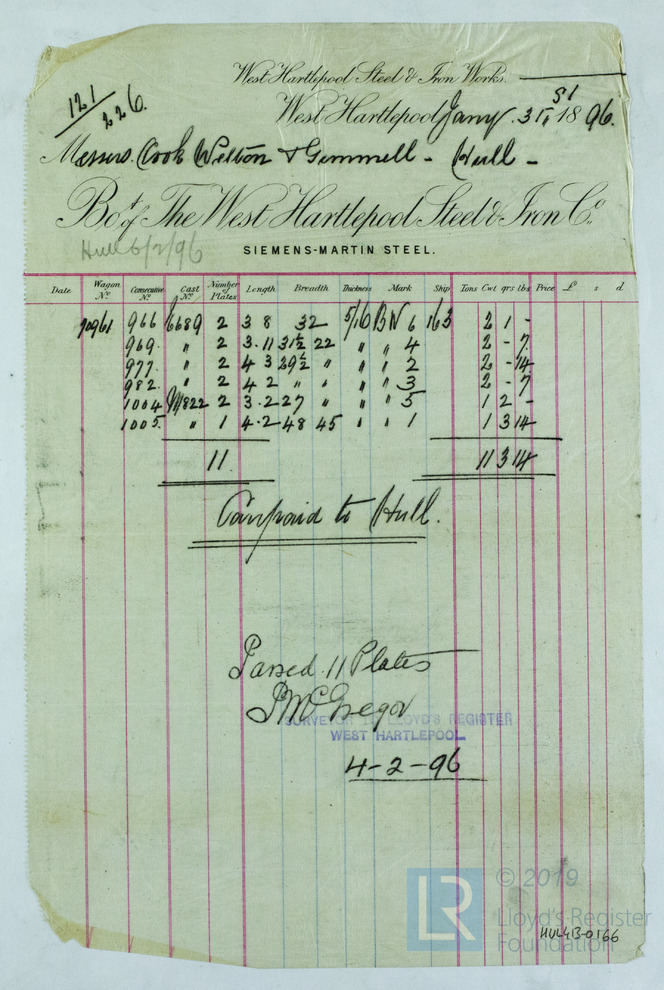 West Hartlepool Steel & Iron Works.
121
226.
West Hartlepool Jany. 31st 1896.
Messrs. Cook Welton & Gemmell - Hull -
Bot of The West Hartlepool Steel & Iron Co.
Hull 6/2/96
SIEMENS-MARTIN STEEL.
Date Wagon No. Consecutive No. Cast No. Number of Plates Length Breadth Thickness Mark Ship Tons Cwt qrs lbs Price £ s d
70961 966 6689 2 3 8 32 5/16 BN 6 163 2 1 -
969. " 2 3.11 31½ 22 " " 4 2 - 7
977. " 2 4 3 29½ " " " 2 2 - 14
982. " 2 4 2 " " " " 3 2 - 7
1004 M822 2 3.2 27 " " " 5 1 2 -
1005. " 1 4.2 48 45 " " 1 1 3 14
11. 11 3 14
Carr paid to Hull.
Passed 11 Plates
J McGregor
SURVEYOR TO LLOYD'S REGISTER
WEST HARTLEPOOL
4-2-96
LR
© 2019
Lloyd's Register
Foundation
HUL413-0166